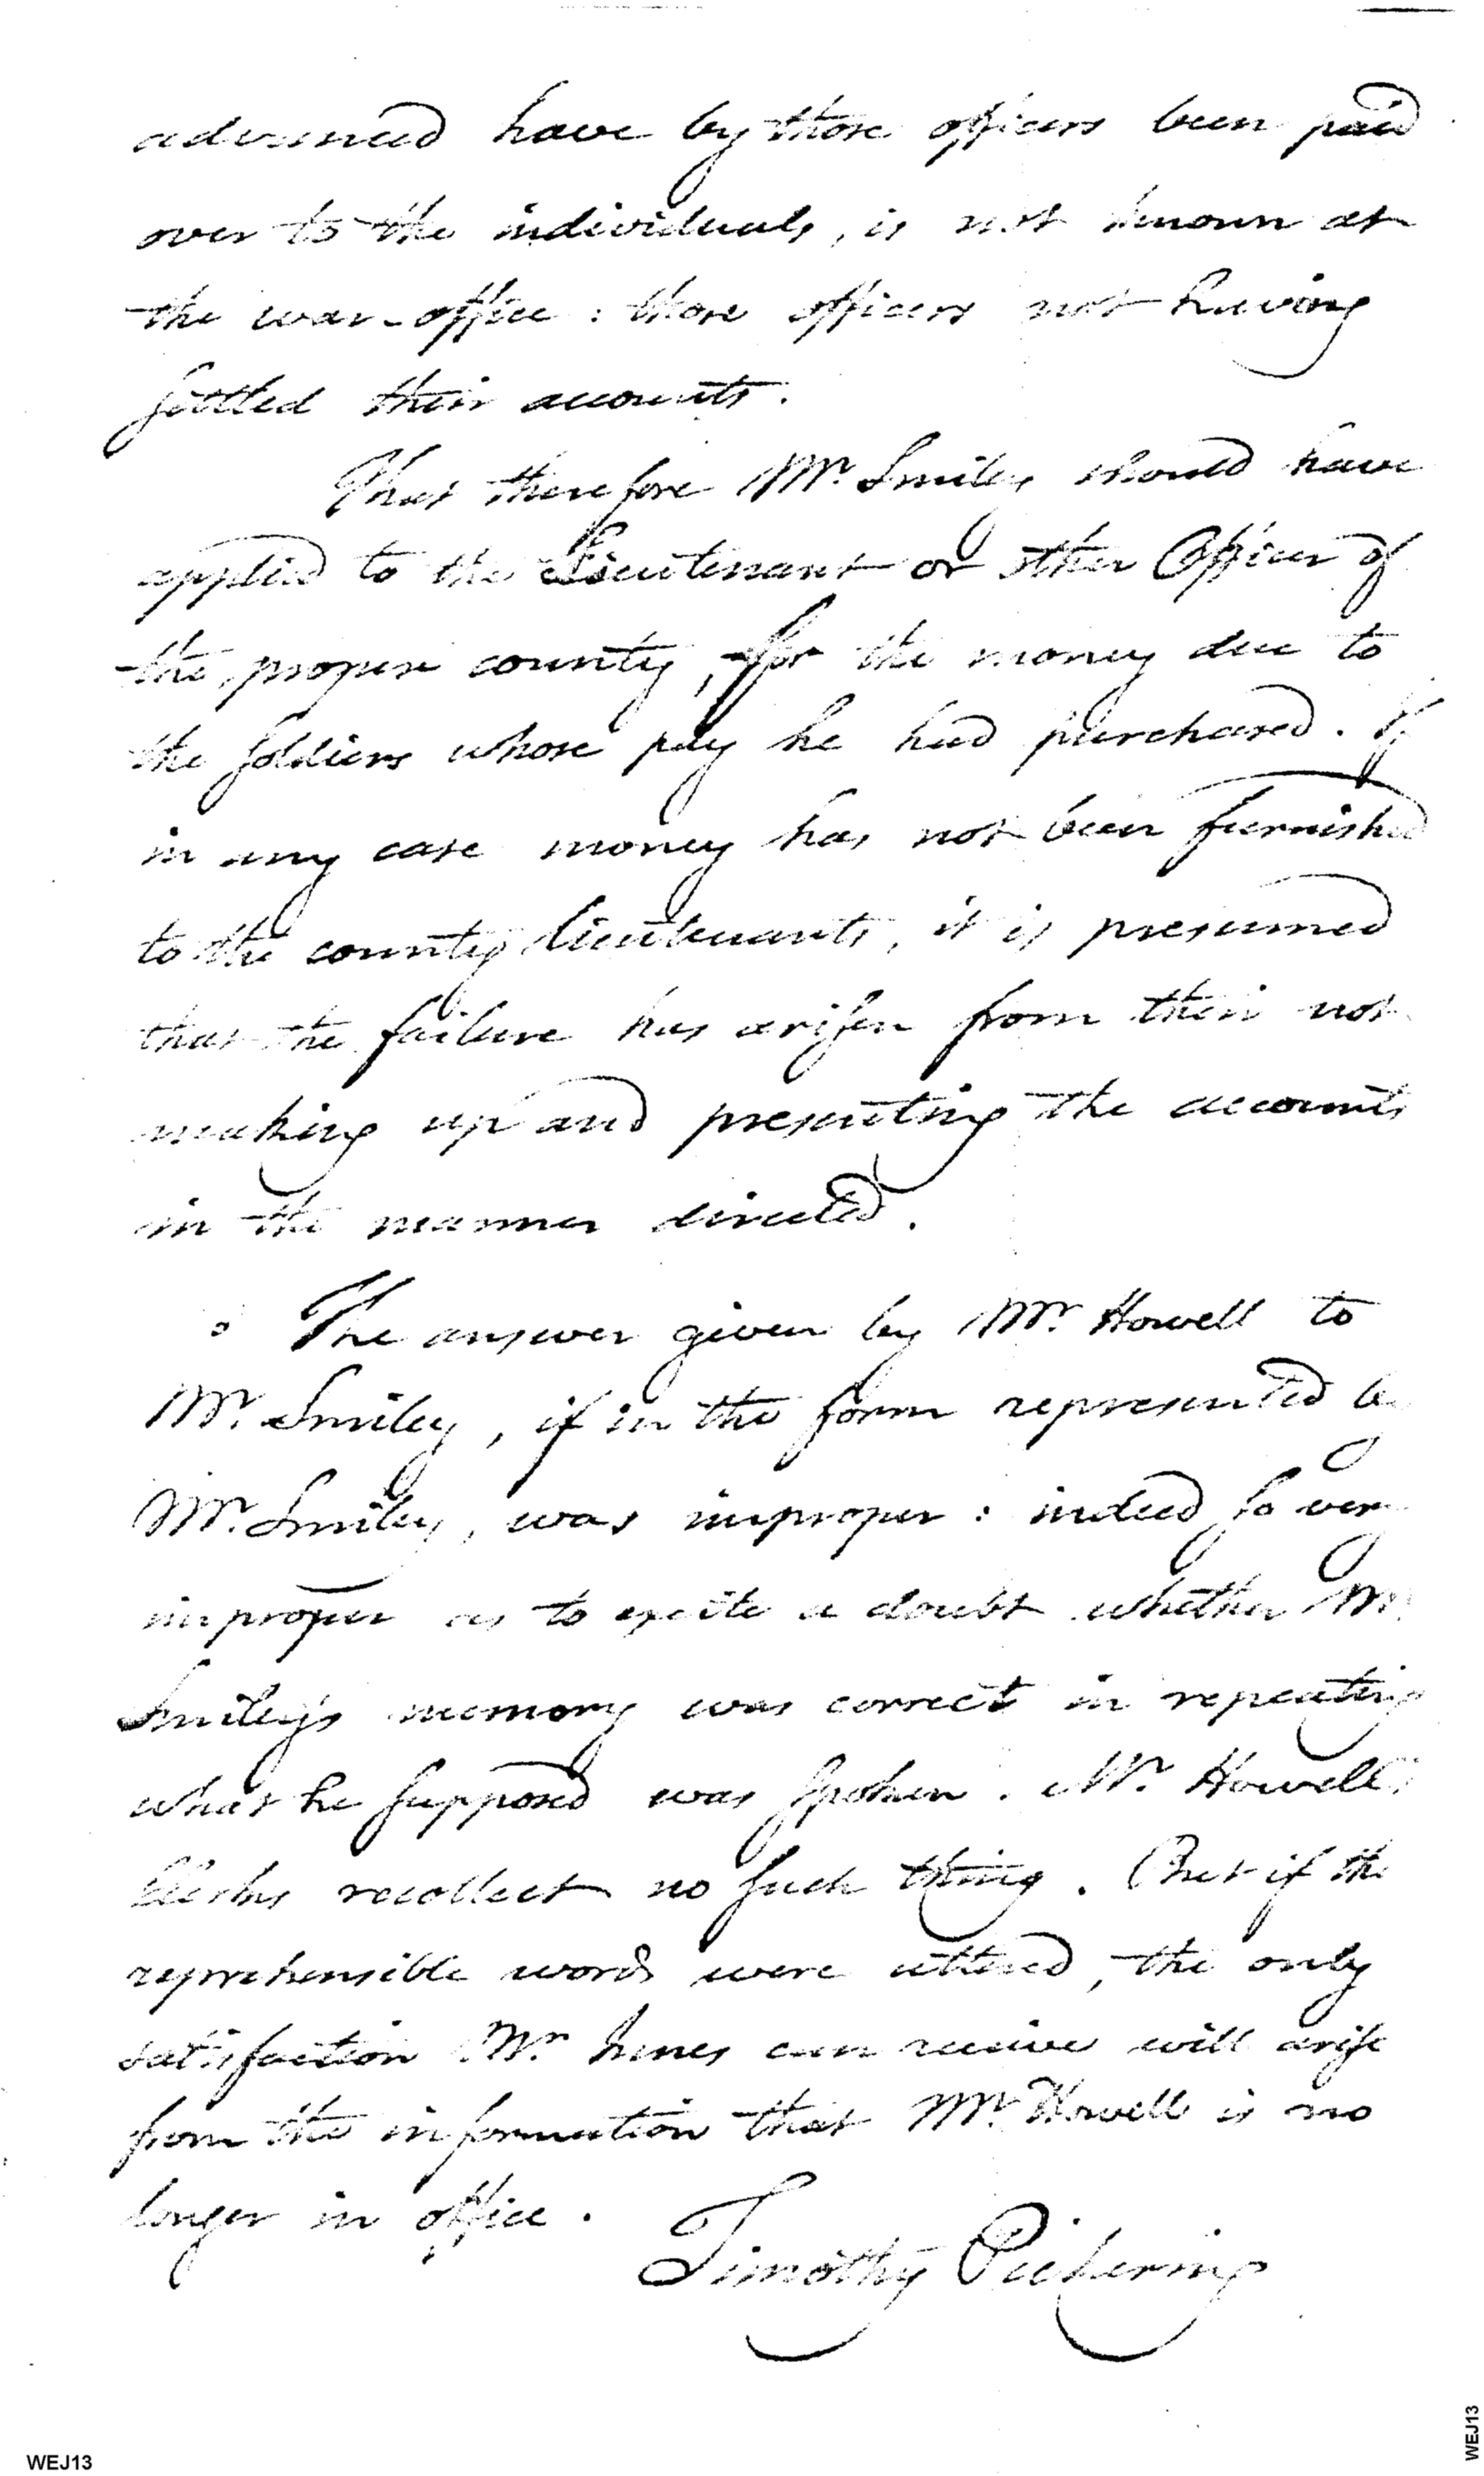 advanced have by those officers been paid
over to the individuals, is not known at
the war-office: those officers not having
settled their accounts.
That therefore Mr. Smiley should have
applied to the Lieutenant or other Officer of
the proper county, for the money due to
the soldiers whose pay he had purchased. If
in any case money has not been furnished
to the county lieutenants, it is presumed
that the failure has arisen from their not
making up and presenting the accounts
in the manner directed.
The answer given by Mr. Howell to
Mr. Smiley, if in the form represented by
Mr. Smiley, was improper: indeed so very
improper as to excite a doubt whether Mr.
Smiley's memory was correct in repeating
what he supposed was spoken. Mr. Howell's
Clerks recollect no such thing. But if the
reprehensible words were uttered, the only
satisfaction Mr. Innes can receive will arise
from the information that Mr. Howell is no
longer in office.
Timothy Pickering
WEJ13
WEJ13